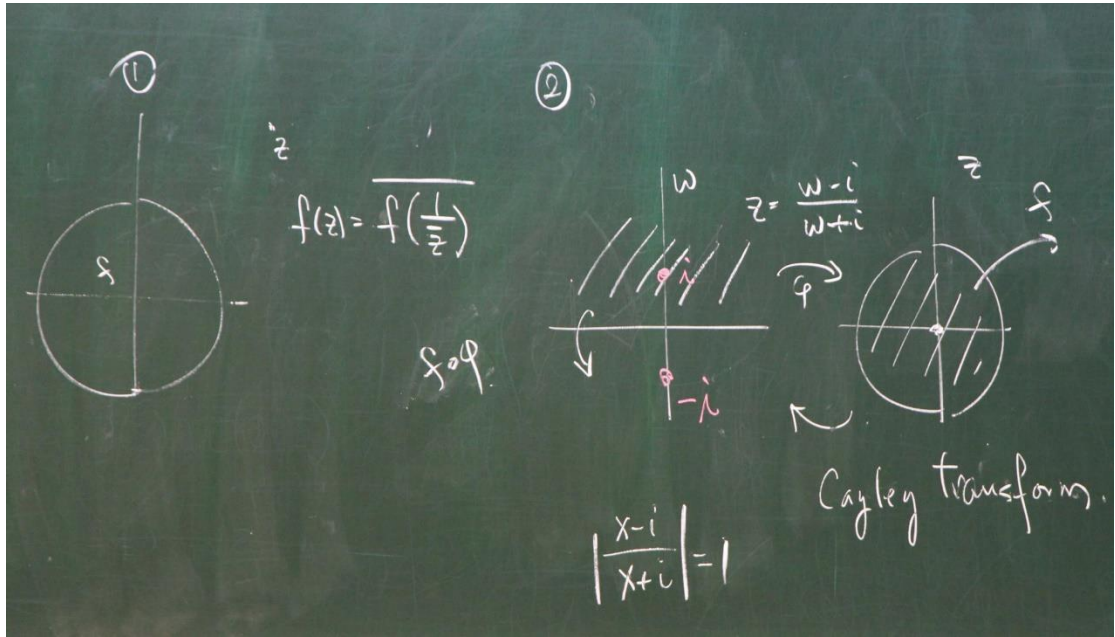 ①
f
z
f(z) = \overline{f(\frac{1}{\overline{z}})}
f∘φ.
②
w
i
-i
z = \frac{w-i}{w+i}
φ
z
f
Cayley transform.
|\frac{x-i}{x+i}| = 1